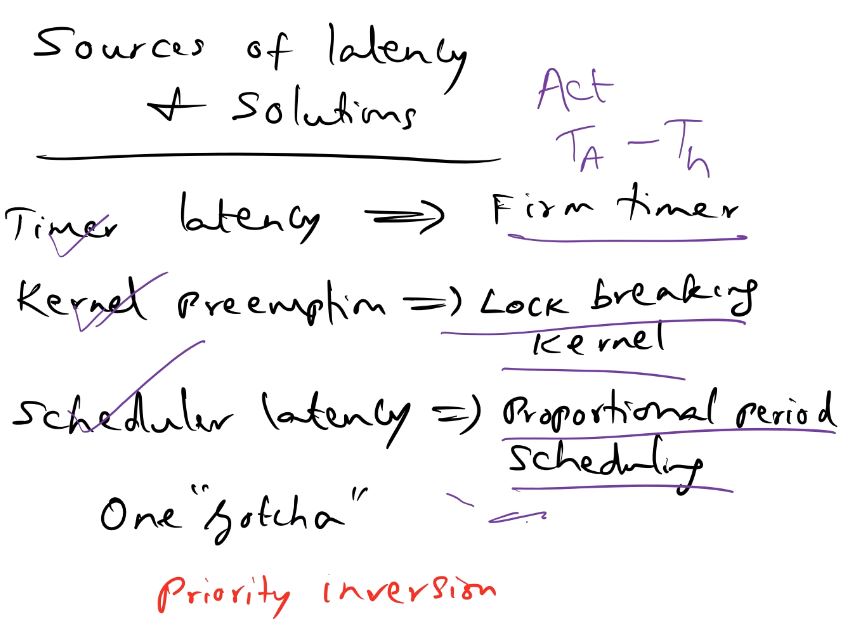 Sources of latency
+ Solutions
Act
TA - Th
Timer latency => Firm timer
Kernel preemption => Lock breaking
Kernel
Scheduler latency => Proportional period
Scheduling
One "gotcha"
Priority inversion